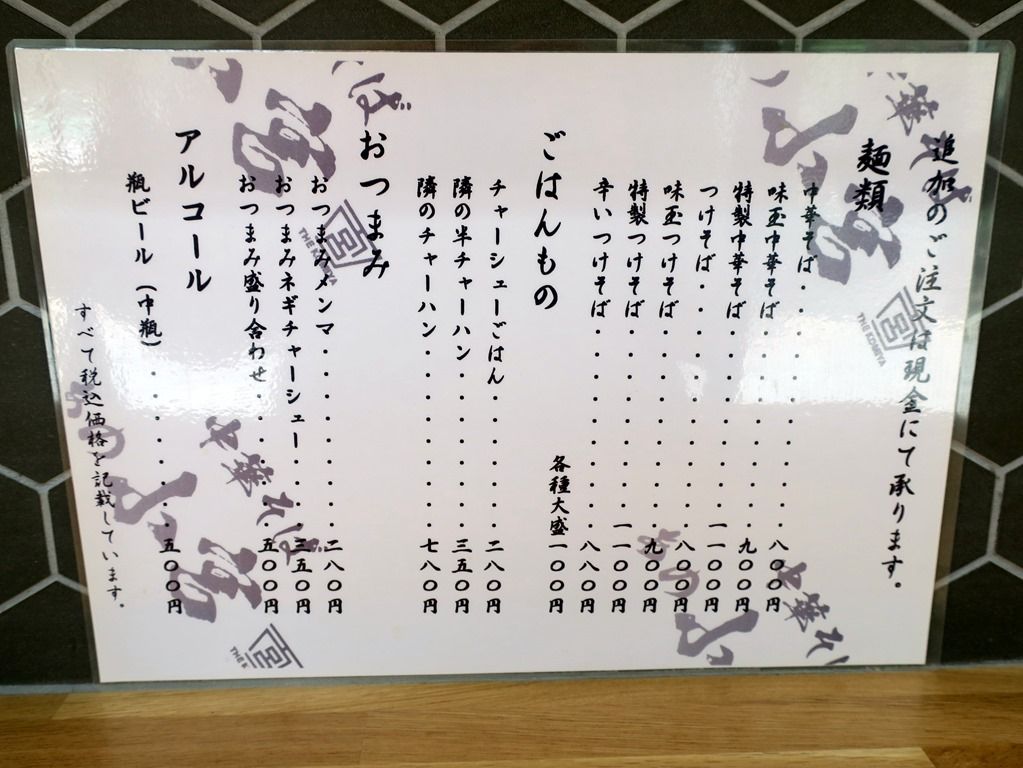 追加のご注文は現金にて承ります。
麺類
中華そば・・・・・・・・・・八〇〇円
味玉中華そば・・・・・・・・九〇〇円
特製中華そば・・・・・・・・一一〇〇円
つけそば・・・・・・・・・・八〇〇円
味玉つけそば・・・・・・・・九〇〇円
特製つけそば・・・・・・・・一一〇〇円
辛いつけそば・・・・・・・・八八〇円
各種大盛一〇〇円
ごはんもの
チャーシューごはん・・・・二八〇円
隣の半チャーハン・・・・・三五〇円
隣のチャーハン・・・・・・七八〇円
おつまみ
おつまみメンマ・・・・・・二八〇円
おつまみネギチャーシュー・・・三五〇円
おつまみ盛り合わせ・・・・五〇〇円
アルコール
瓶ビール(中瓶)・・・・・五〇〇円
すべて税込価格を記載しています。
中華そば
THE KOMIYA